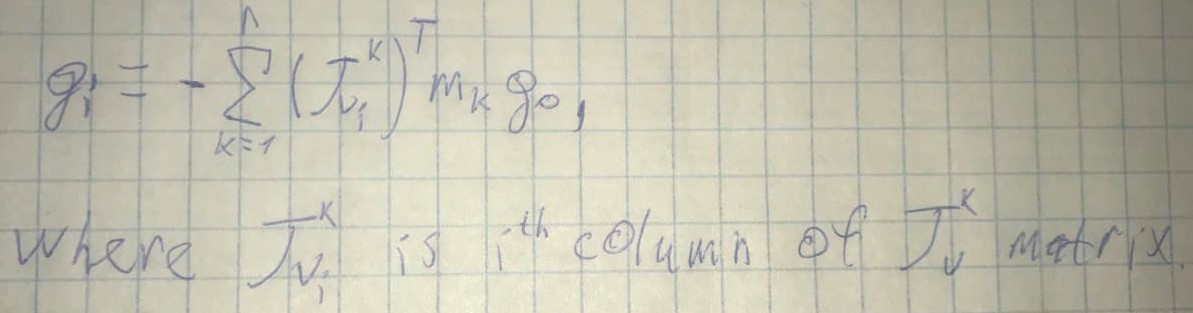 g_i = - \sum_{k=1}^{n} (J_{v_i}^k)^T m_k g_0,
where J_{v_i}^k is i^{th} column of J_v^k matrix.